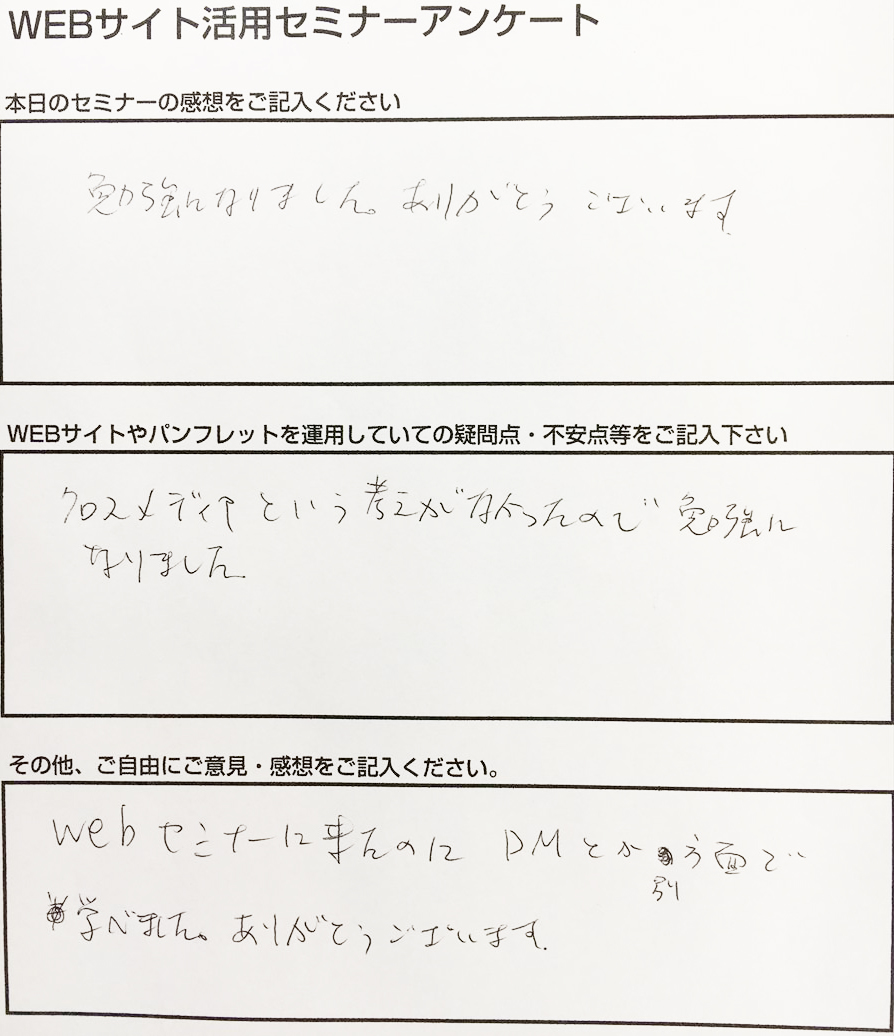 WEBサイト活用セミナーアンケート
本日のセミナーの感想をご記入ください
勉強になりました。ありがとうございます
WEBサイトやパンフレットを運用していての疑問点・不安点等をご記入下さい
クロスメディアという考えがなかったので勉強に
なりました
その他、ご自由にご意見・感想をご記入ください。
webセミナーに来たのにDMとか別方面で
学べました。ありがとうございます.